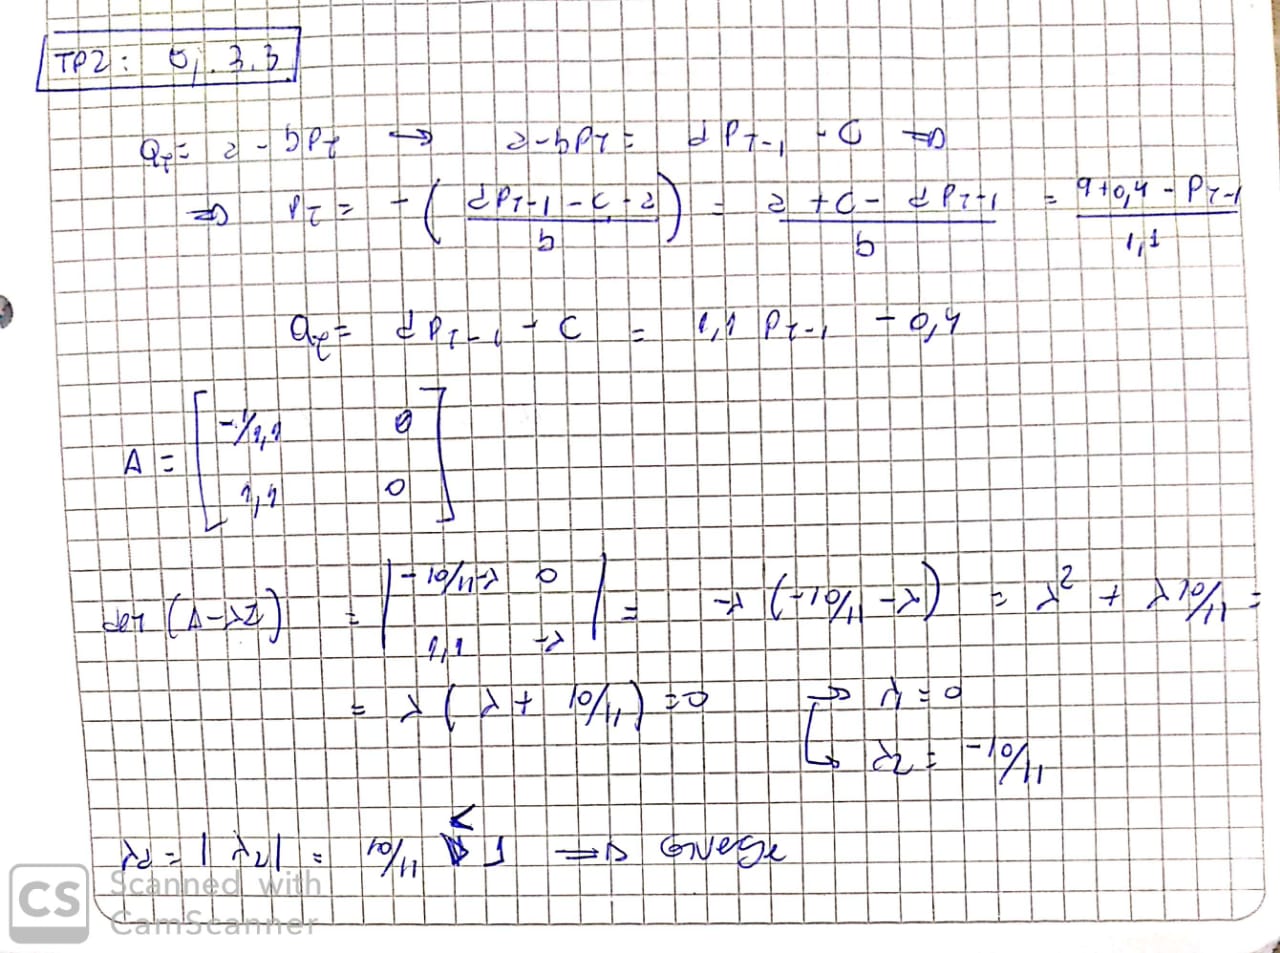 TP2: 5,. 3.3
Qt = a - bPt ⇔ a - bPt = dPt-1 - c ⇒
⇒ Pt = -( dPt-1 - c - a / b ) = a + c - dPt-1 / b = 9 + 0,4 - Pt-1 / 1,1
Qt = dPt-1 - c = 1,1 Pt-1 - 0,4
A = [ -1/1,1 0
1,1 0 ]
det (A-λI) = | -10/11-λ 0
1,1 -λ | = -λ (-10/11-λ) = λ² + λ10/11 =
= λ (λ + 10/11) = 0 → λ1 = 0
→ λ2 = -10/11
= |λ2| = 10/11 < 1 ⇒ converge
CS Scanned with
CamScanner